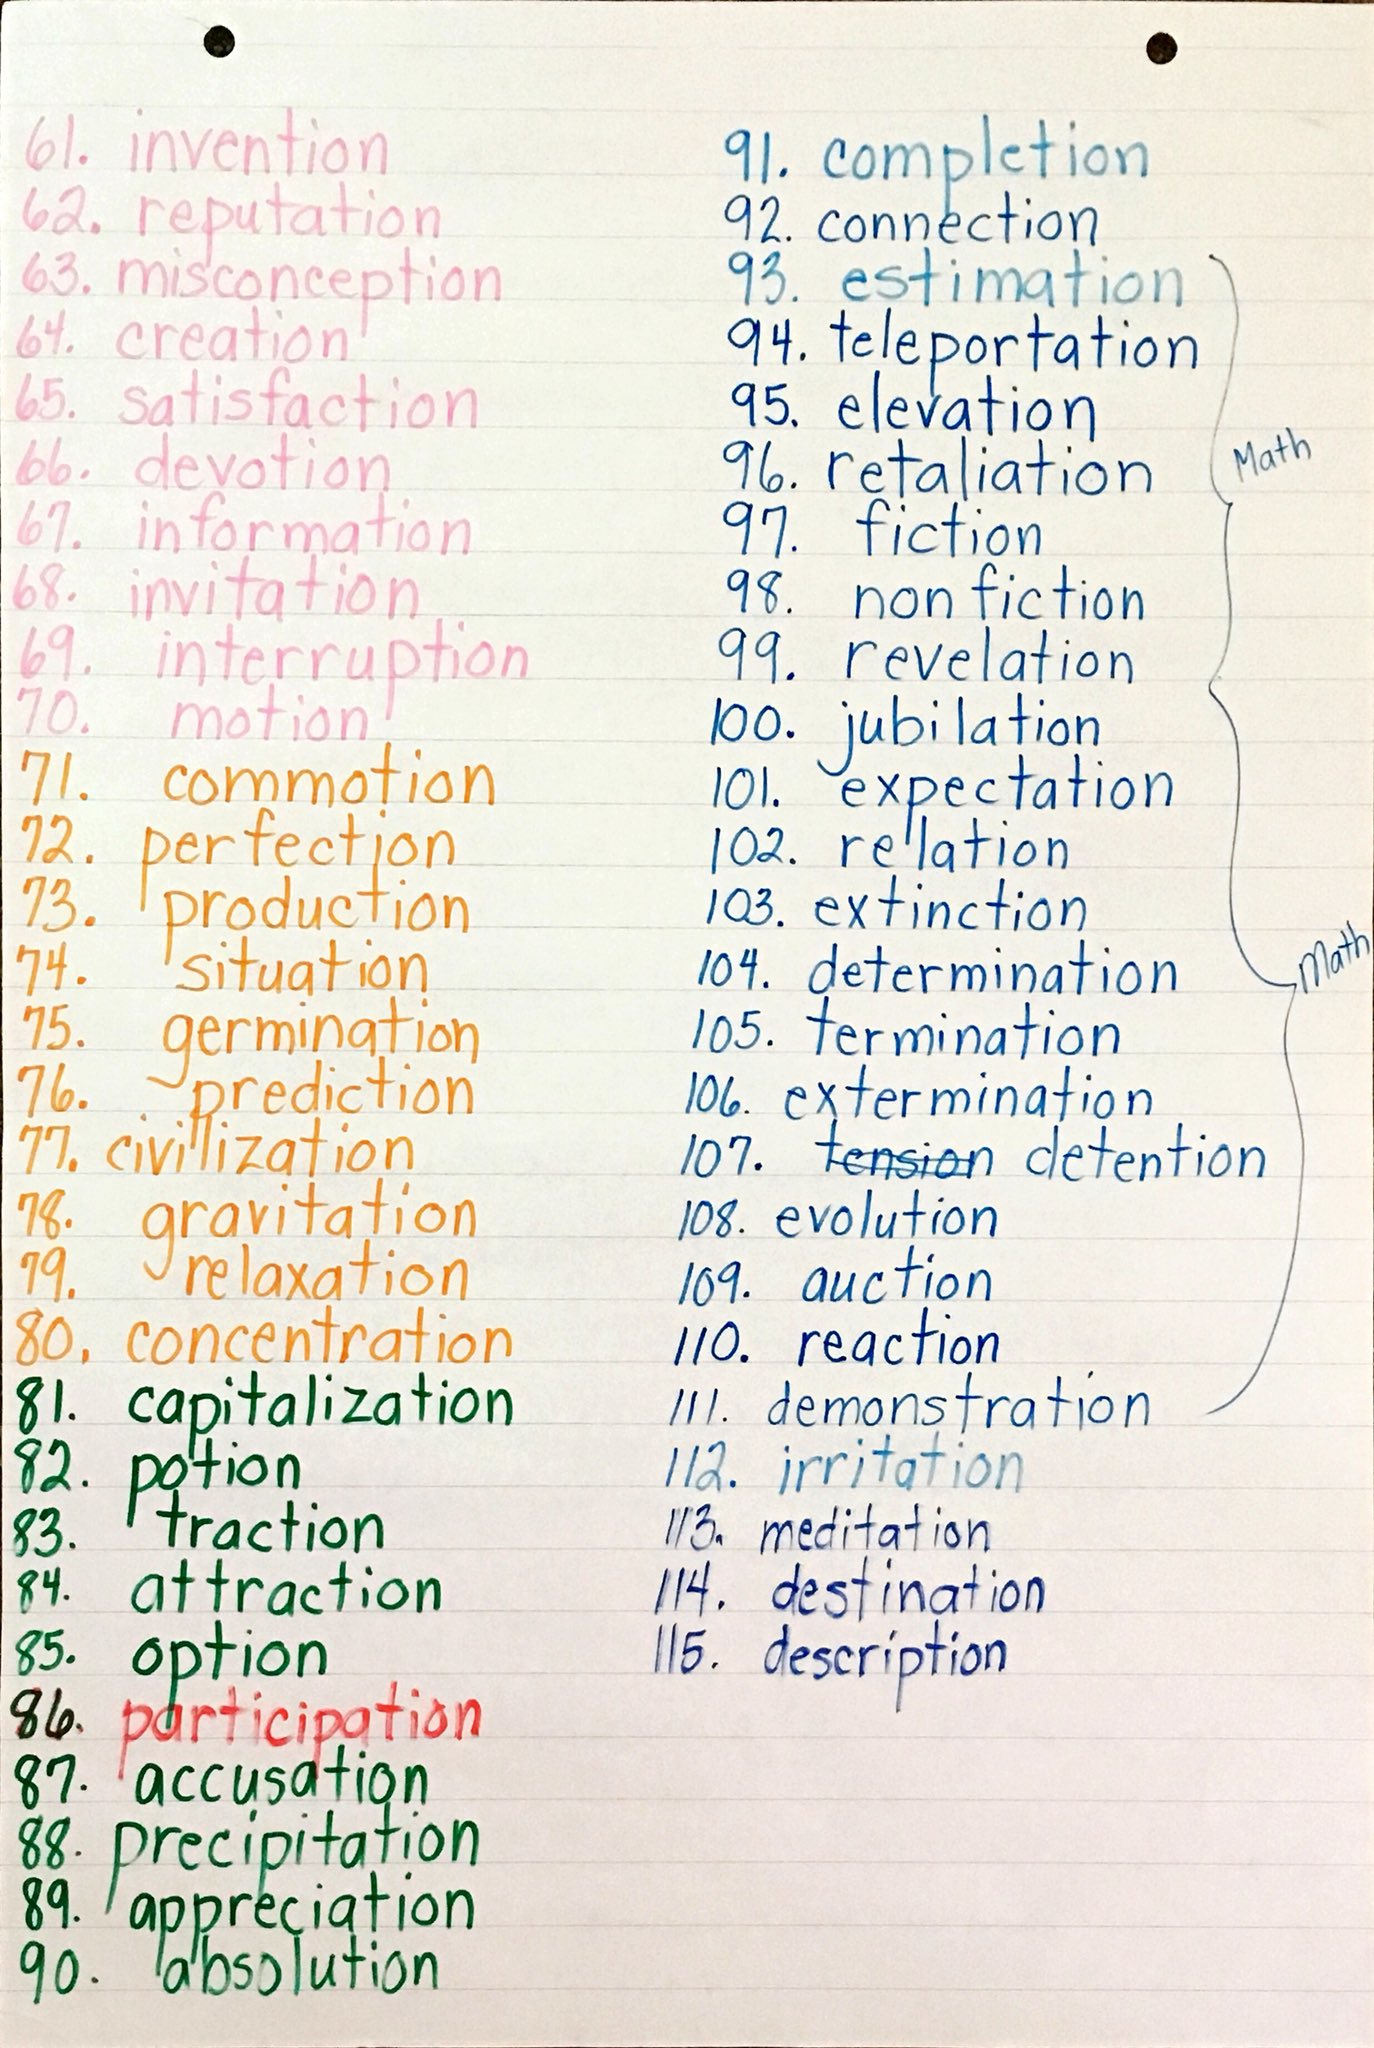 61. invention
62. reputation
63. misconception
64. creation
65. satisfaction
66. devotion
67. information
68. invitation
69. interruption
70. motion
71. commotion
72. perfection
73. production
74. situation
75. germination
76. prediction
77. civilization
78. gravitation
79. relaxation
80. concentration
81. capitalization
82. potion
83. traction
84. attraction
85. option
86. participation
87. accusation
88. precipitation
89. appreciation
90. absolution
91. completion
92. connection
93. estimation
94. teleportation
95. elevation
96. retaliation
97. fiction
98. nonfiction
99. revelation
100. jubilation
101. expectation
102. relation
103. extinction
104. determination
105. termination
106. extermination
107. tension detention
108. evolution
109. auction
110. reaction
111. demonstration
112. irritation
113. meditation
114. destination
115. description
Math
Math